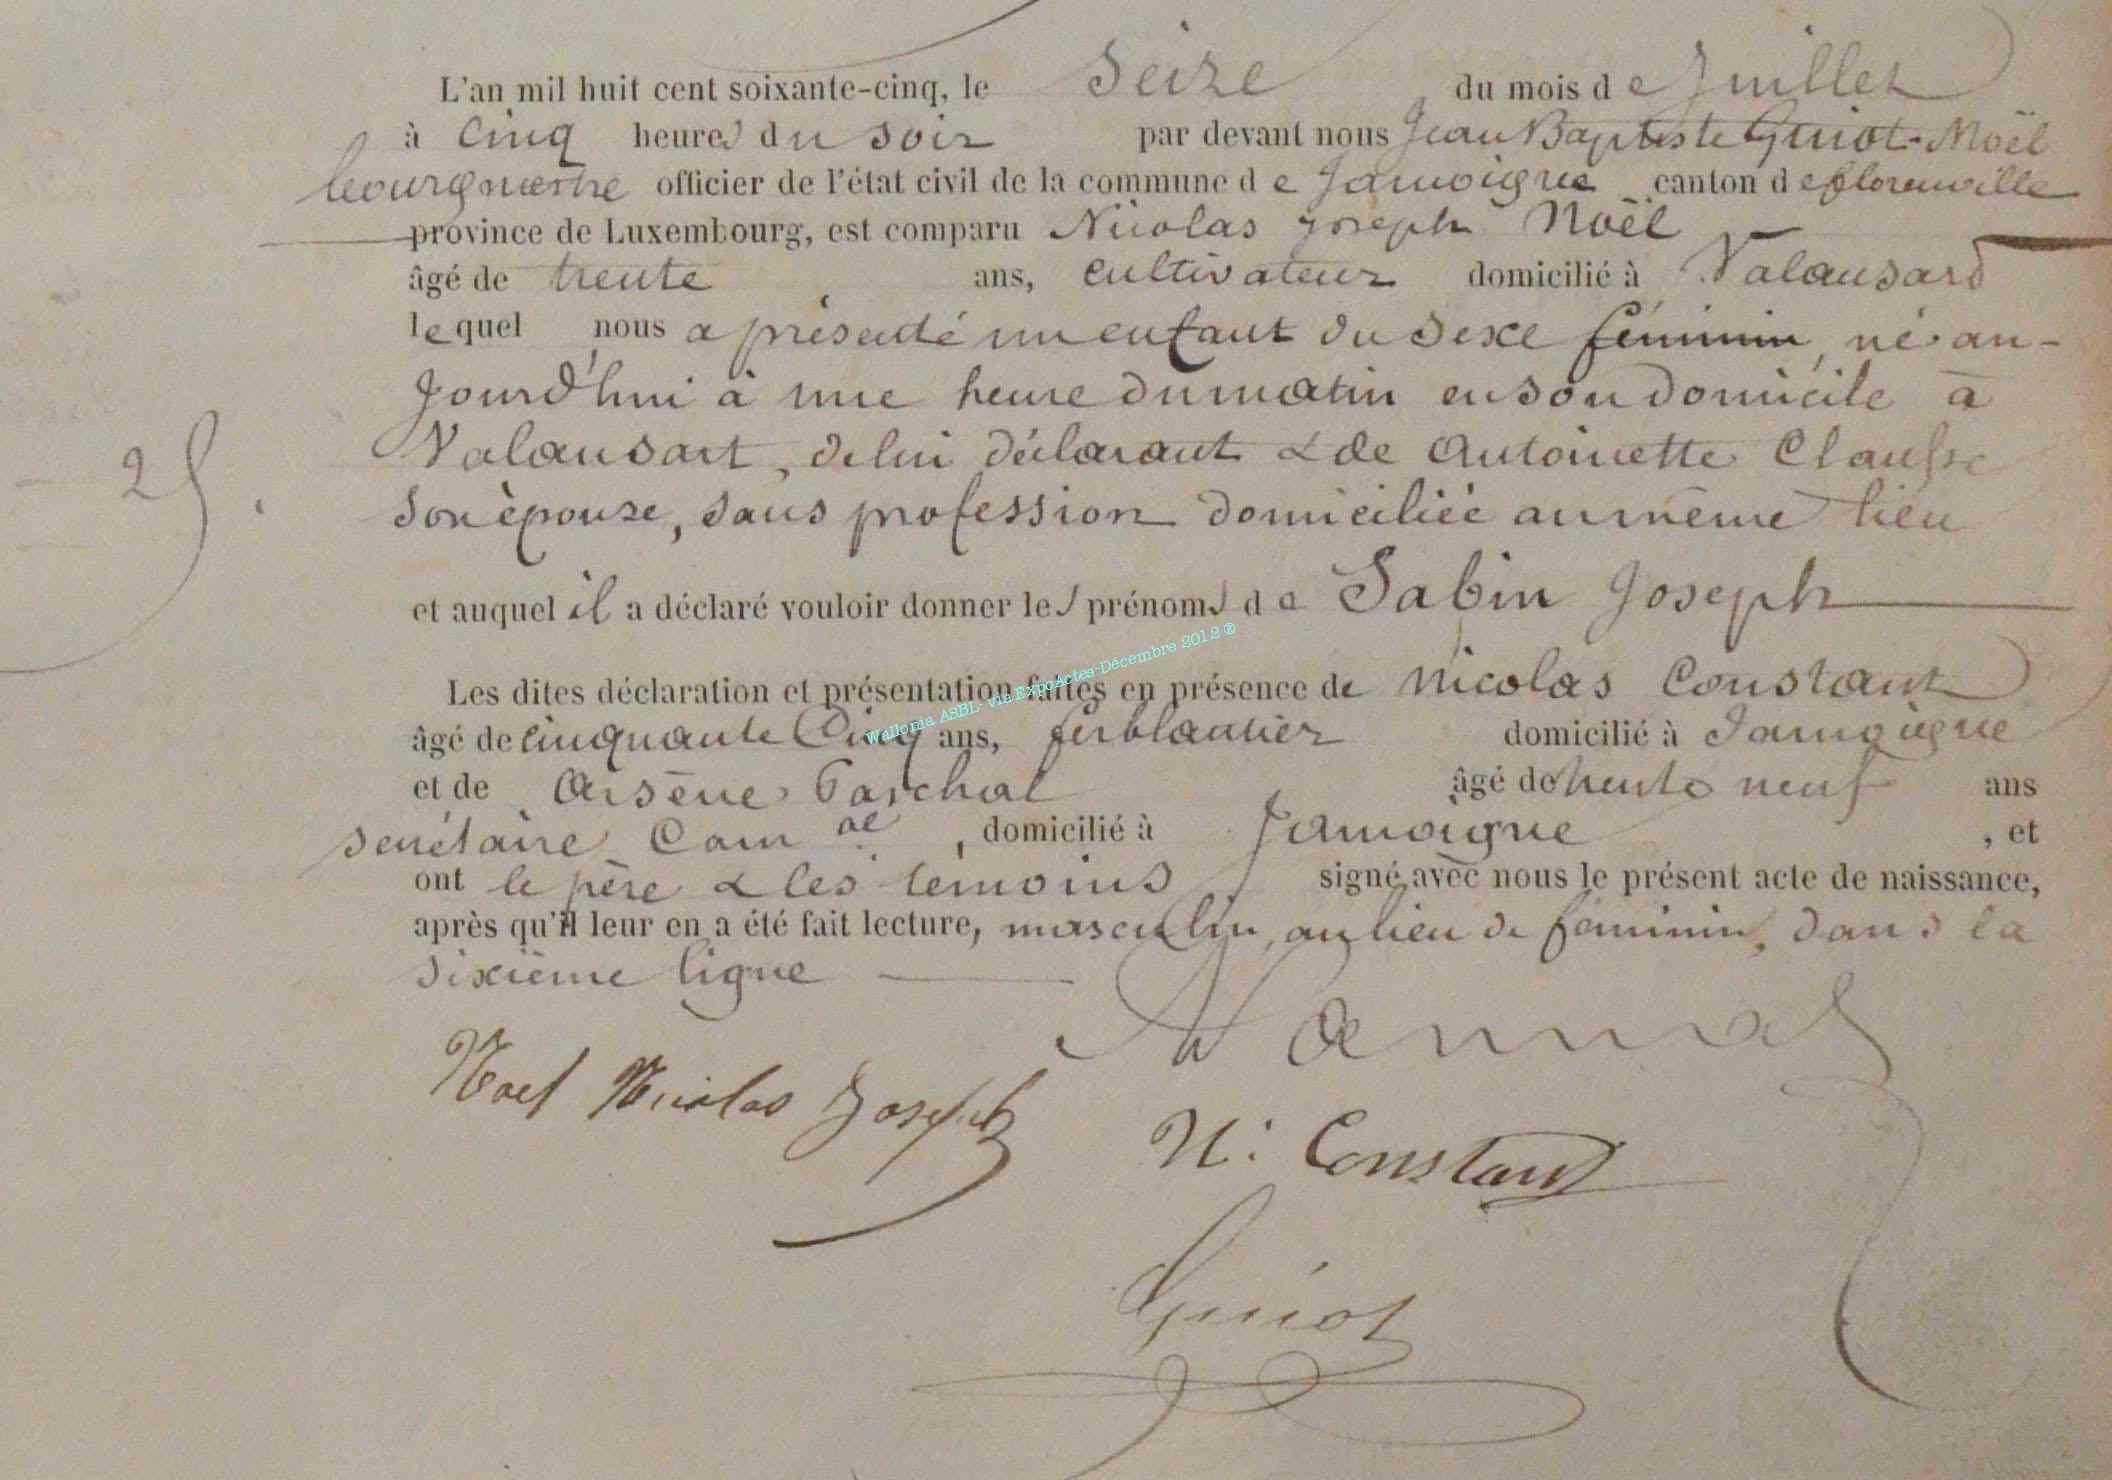 L'an mil huit cent soixante-cinq, le Seize du mois de Juillet
à Cinq heures du soir par devant nous Jean Baptiste Guiot-Noël
bourgmestre officier de l'état civil de la commune de Jamoigne canton de florenville
province de Luxembourg, est comparu Nicolas joseph Noël
âgé de trente ans, cultivateur domicilié à Valansard
lequel nous a présenté un enfant du sexe féminin, né au-
jourd'hui à une heure du matin en son domicile à
Valansart, de lui déclarant & de Antoinette Clausse
son épouse, sans profession domiciliée au même lieu
25.
et auquel il a déclaré vouloir donner les prénoms de Sabin Joseph
Les dites déclaration et présentation faites en présence de Nicolas Constant
Wallonia ASBL- via ExpoActes-Décembre 2012 ®
âgé de cinquante Cinq ans, ferblantier domicilié à Jamoigne
et de Arsène Paschal âgé de trente neuf ans
secrétaire Com al, domicilié à Jamoigne, et
ont le père & les témoins signé avec nous le présent acte de naissance,
après qu'il leur en a été fait lecture, masculin, au lieu de féminin, dans la
sixième ligne
Noel Nicolas Joseph
N: Constant
Guiot